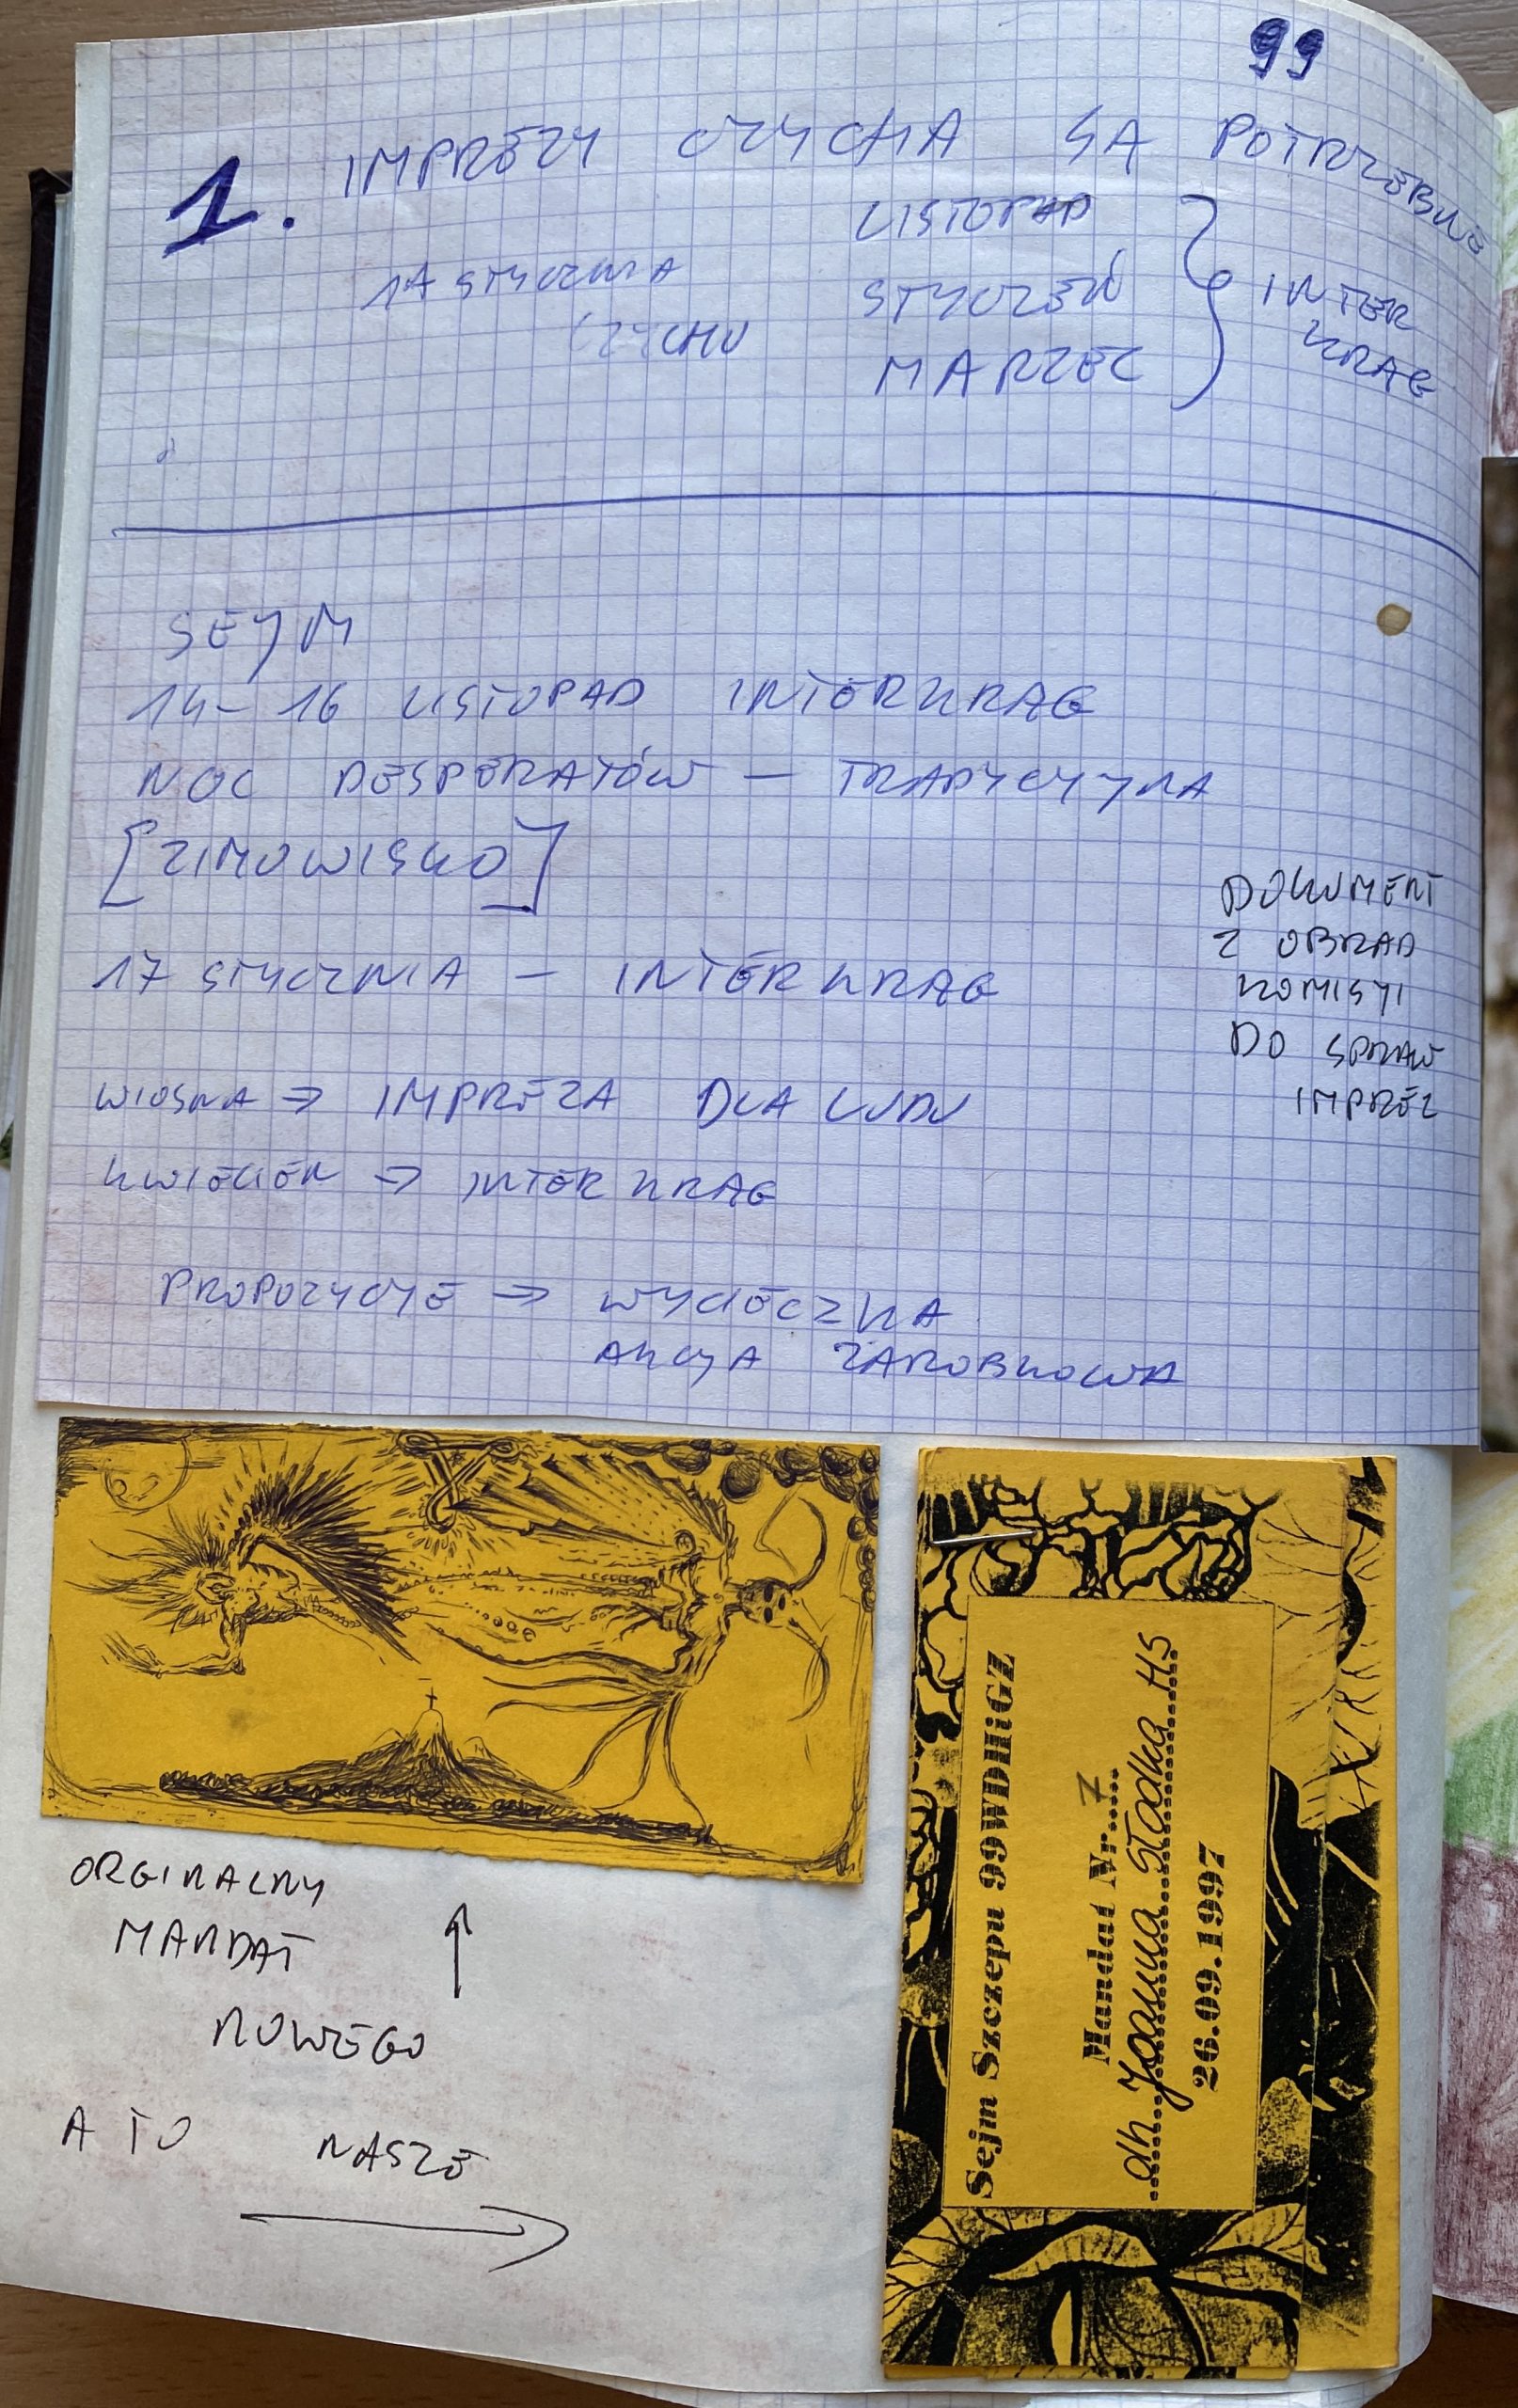 99
1. IMPREZY CZYCHA SĄ POTRZEBNE
LISTOPAD
17 STYCZNIA
CZYCHU
STYCZEŃ
MARZEC
INTER
KRĄG
SEJM
14-16 LISTOPAD INTERKRĄG
NOC DESPERATÓW – TRADYCYJNA
[ZIMOWISKO]
17 STYCZNIA – INTERKRĄG
WIOSNA → IMPREZA DLA LUDU
KWIECIEŃ → INTERKRĄG
PROPOZYCJE → WYCIECZKA
AKCJA ZAROBKOWA
DOKUMENT
Z OBRAD
KOMISYI
DO SPRAW
IMPREZ
ORGINALNY
MANDAT
NOWEGO
A TO NASZE
Sejm Szczepu 99WDHiGZ
Mandat Nr...7...
dh. Joanna Stadka HS
26.09.1997